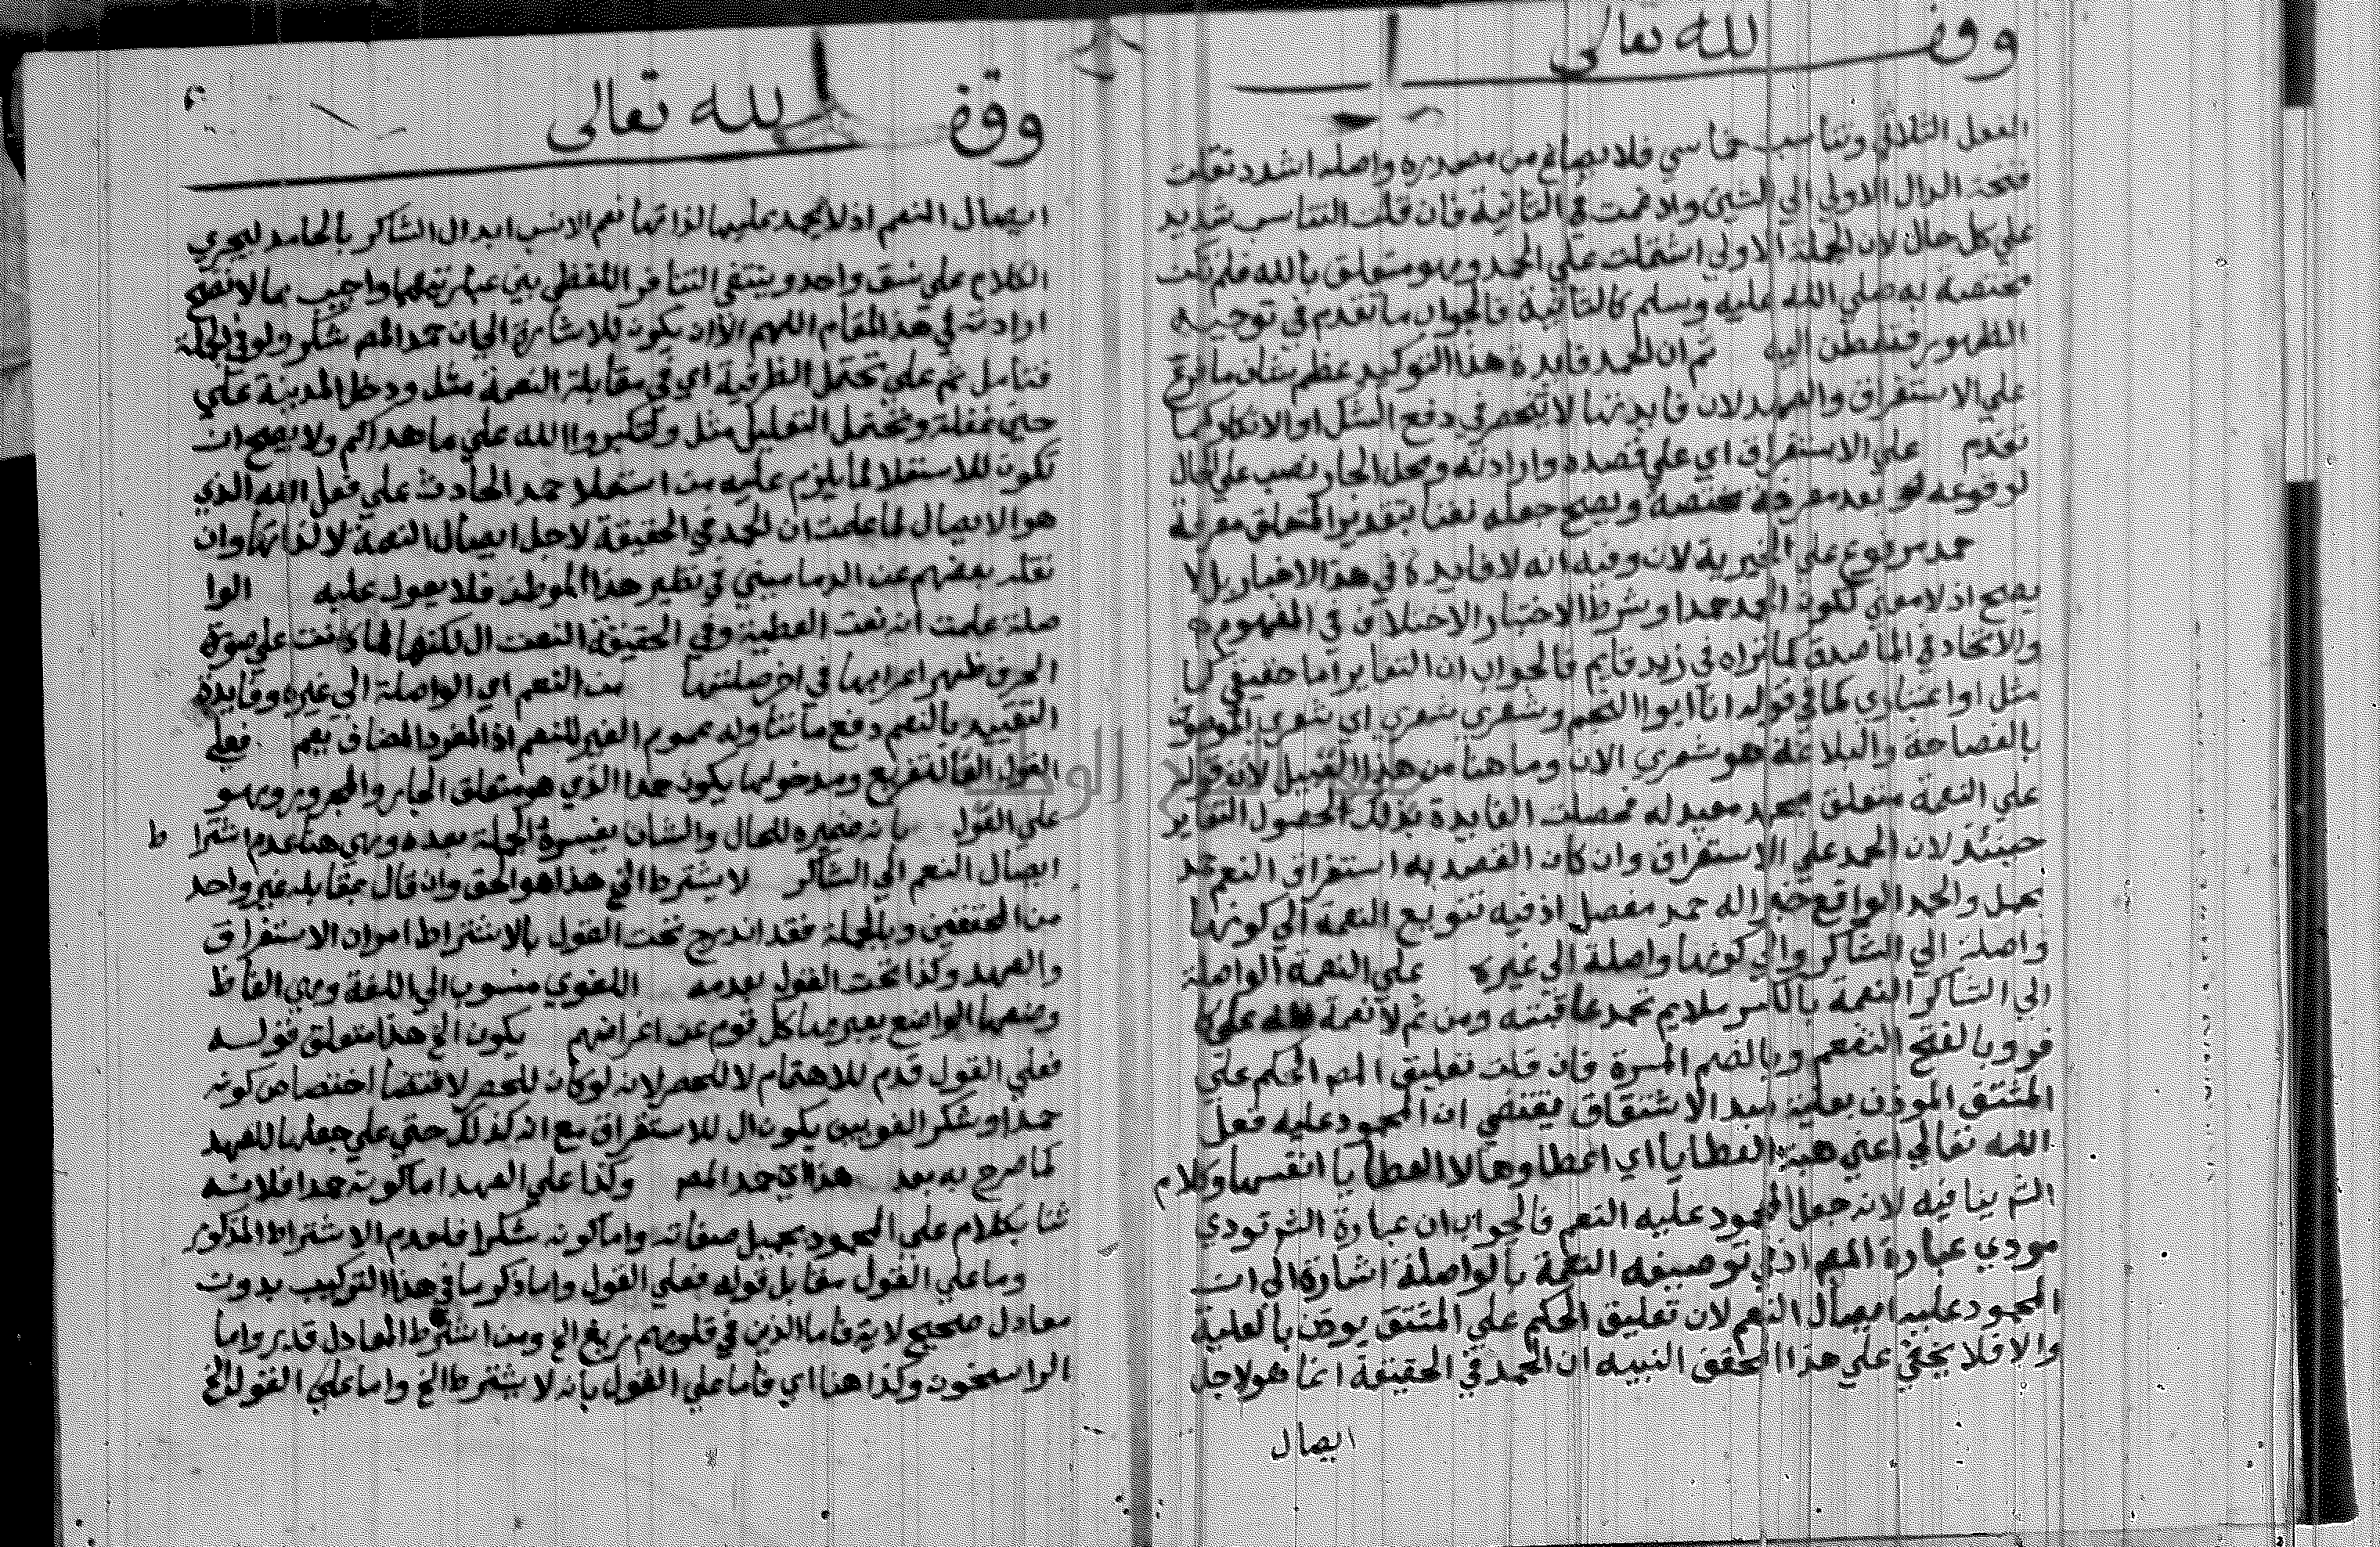 وقف لله تعالى
الفعل الثلاثي وتناسب خماسي فلا يصاغ من مصدره واصله اشدد نقلت
فتحة الدال الاولي الي الشين وادغمت في الثانية فان قلت التناسب شديد
علي كل حال لان الجملة الاولي اشتملت علي الحمد وهو متعلق بالله فلم تكن
مختصة به صلي الله عليه وسلم كالثانية فالجواب ما تقدم في توجيه
الظهور فتفطن اليه ثم ان الحمد فايدة هذا التوكيد عظم شان ما
علي الاستغراق والعهد لان فايدتها لا تنحصر في دفع الشك او الانكار كما
تقدم علي الاستغراق اي علي قصده وارادته ومحل الجار نصب علي الحال
لوقوعه بعد معرفة مختصة ويصح جعله نعتا بتقدير المتعلق معرفة
حمد مرفوع علي الخبرية لان وفيه انه لا فايدة في هذا الاخبار بل لا
يصح اذ لا معني لكون الحمد حمدا وشرط الاخبار الاختلاف في المفهوم
والاتحاد في الماصدق كما تراه في زيد قايم فالجواب ان التغاير اما حقيقي كما
مثل او اعتباري كما في قوله انا ابو النجم وشعري شعري اي شعري الموصوف
بالفصاحة والبلاغة هو شعري الان وما هنا من هذا القبيل لان قوله
علي النعمة متعلق بحمد مقيد له فحصلت الفايدة بذلك لحصول التغاير
حينئذ لان الحمد علي الاستغراق وان كان القصد به استغراق النعم حمد
مجمل والحمد الواقع خبرا له حمد مفصل اذ فيه تنويع النعمة الي كونها
واصلة الي الشاكر والي كونها واصلة الي غيره علي النعمة الواصلة
الي الشاكر النعمة بالكسر ملايم تحمد عاقبته ومن ثم لا نعمة لله علي كا
فر وبالفتح التنعم وبالضم المسرة فان قلت تعليق المص الحكم علي
المشتق الموذن بعلية مبدا الاشتقاق يقتضي ان المحمود عليه فعل
الله تعالي اعني هبة العطايا اي اعطاوها لا العطايا انفسها وكلام
الش ينافيه لانه جعل المحمود عليه النعم فالجواب ان عبارة الش تودي
مودي عبارة المص اذ في توصيفه النعمة بالواصلة اشارة الي ان
المحمود عليه ايصال النعم لان تعليق الحكم علي المشتق يوذن بالعلية
والا فلا يخفي علي هذا المحقق النبيه ان الحمد في الحقيقة انما هو لاجل
ايصال
وقف لله تعالى
ايصال النعم اذ لا يحمد عليها لذاتها نعم الانسب ابدال الشاكر بالحامد ليجري
الكلام علي نسق واحد وينتفي التنافر اللفظي بين عبارتيهما واجيب بما لا تصح
ارادته في هذا المقام اللهم الا ان يكون للاشارة الي ان حمد المص شكر ولو في الجملة
فتامل ثم علي تحتمل الظرفية اي في مقابلة النعمة مثل ودخل المدينة علي
حين غفلة وتحتمل التعليل مثل ولتكبروا الله علي ما هداكم ولا يصح ان
تكون للاستعلا لما يلزم عليه من استعلا حمد الحادث علي فعل الله الذي
هو الايصال لما علمت ان الحمد في الحقيقة لاجل ايصال النعمة لا لذاتها وان
نقله بعضهم عن الدماميني في نظير هذا الموطن فلا يعول عليه الوا
صلة علمت انه نعت العطية وفي الحقيقة النعت ال لكنها لما كانت علي صورة
الحرف ظهر اعرابها في اخر صلتها من النعم اي الواصلة الي غيره وفايدة
التقييد بالنعم دفع ما تناوله عموم الغير للنعم اذ المفرد المضاف يعم فعلي
القول الفا للتفريع ومدخولها يكون حمدا الذي هو متعلق الجار والمجرور وهو
علي القول بانه ضميره للحال والشان يفسره الجملة بعده وهي هنا عدم اشترا ط
ايصال النعم الي الشاكر لا يشترط الخ هذا هو الحق وان قال بمقابله غير واحد
من المحققين وبالجملة فقد اندرج تحت القول بالاشتراط امران الاستغراق
والعهد وكذا تحت القول بعدمه اللغوي منسوب الي اللغة وهي الفاظ
وضعها الواضع يعبر بها كل قوم عن اغراضهم يكون الخ هذا متعلق قوله
فعلي القول قدم للاهتمام لا للحصر لانه لو كان للحصر لاقتضا اختصاص كونه
حمدا وشكر الغويين بكون ال للاستغراق مع انه كذلك حتي علي جعلها للعهد
كما صرح به بعد هذا اي حمد المص وكذا علي العهد اما كونه حمدا فلانه
ثنا بكلام علي المحمود بجميل صفاته واما كونه شكرا فلعدم الاشتراط المذكور
وما علي القول مقابل قوله فعلي القول واما ذكر ما في هذا التركيب بدون
معادل صحيح لاية فاما الذين في قلوبهم زيغ الخ ومن اشترط المعادل قدر واما
الراسخون وكذا هنا اي فاما علي القول بانه لا يشترط الخ واما علي القول الخ